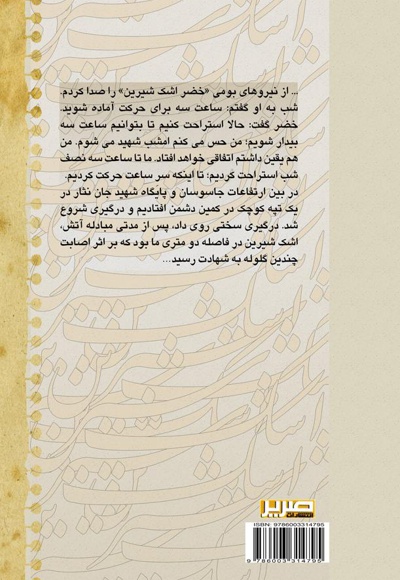 ... از نیروهای بومی «خضر اشک شیرین» را صدا کردم.
شب به او گفتم: ساعت سه برای حرکت آماده شوید.
خضر گفت: حالا استراحت کنیم تا بتوانیم ساعت سه
بیدار شویم؛ من حس می کنم امشب شهید می شوم. من
هم یقین داشتم اتفاقی خواهد افتاد. ما تا ساعت سه نصف
شب استراحت کردیم؛ تا اینکه سر ساعت حرکت کردیم.
در بین ارتفاعات جاسوسان و پایگاه شهید جان نثار در
یک تپه کوچک در کمین دشمن افتادیم و درگیری شروع
شد. درگیری سختی روی داد، پس از مدتی مبادله آتش،
اشک شیرین در فاصله دو متری ما بود که بر اثر اصابت
چندین گلوله به شهادت رسید...
صریر
انتشارات
ISBN: 9786003314795
9 786003 314795